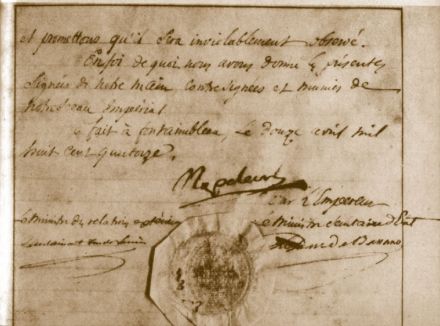 et promettons qu'il sera inviolablement observé.
En foi de quoi nous avons donné les présentes
Signées de notre main contresignées et munies de
notre sceau impérial
fait à fontainebleau, le douze avril mil
huit cent quatorze.
Napoleon
Par l'Empereur
le Ministre des relations extérieures
le Ministre Secrétaire d'Etat